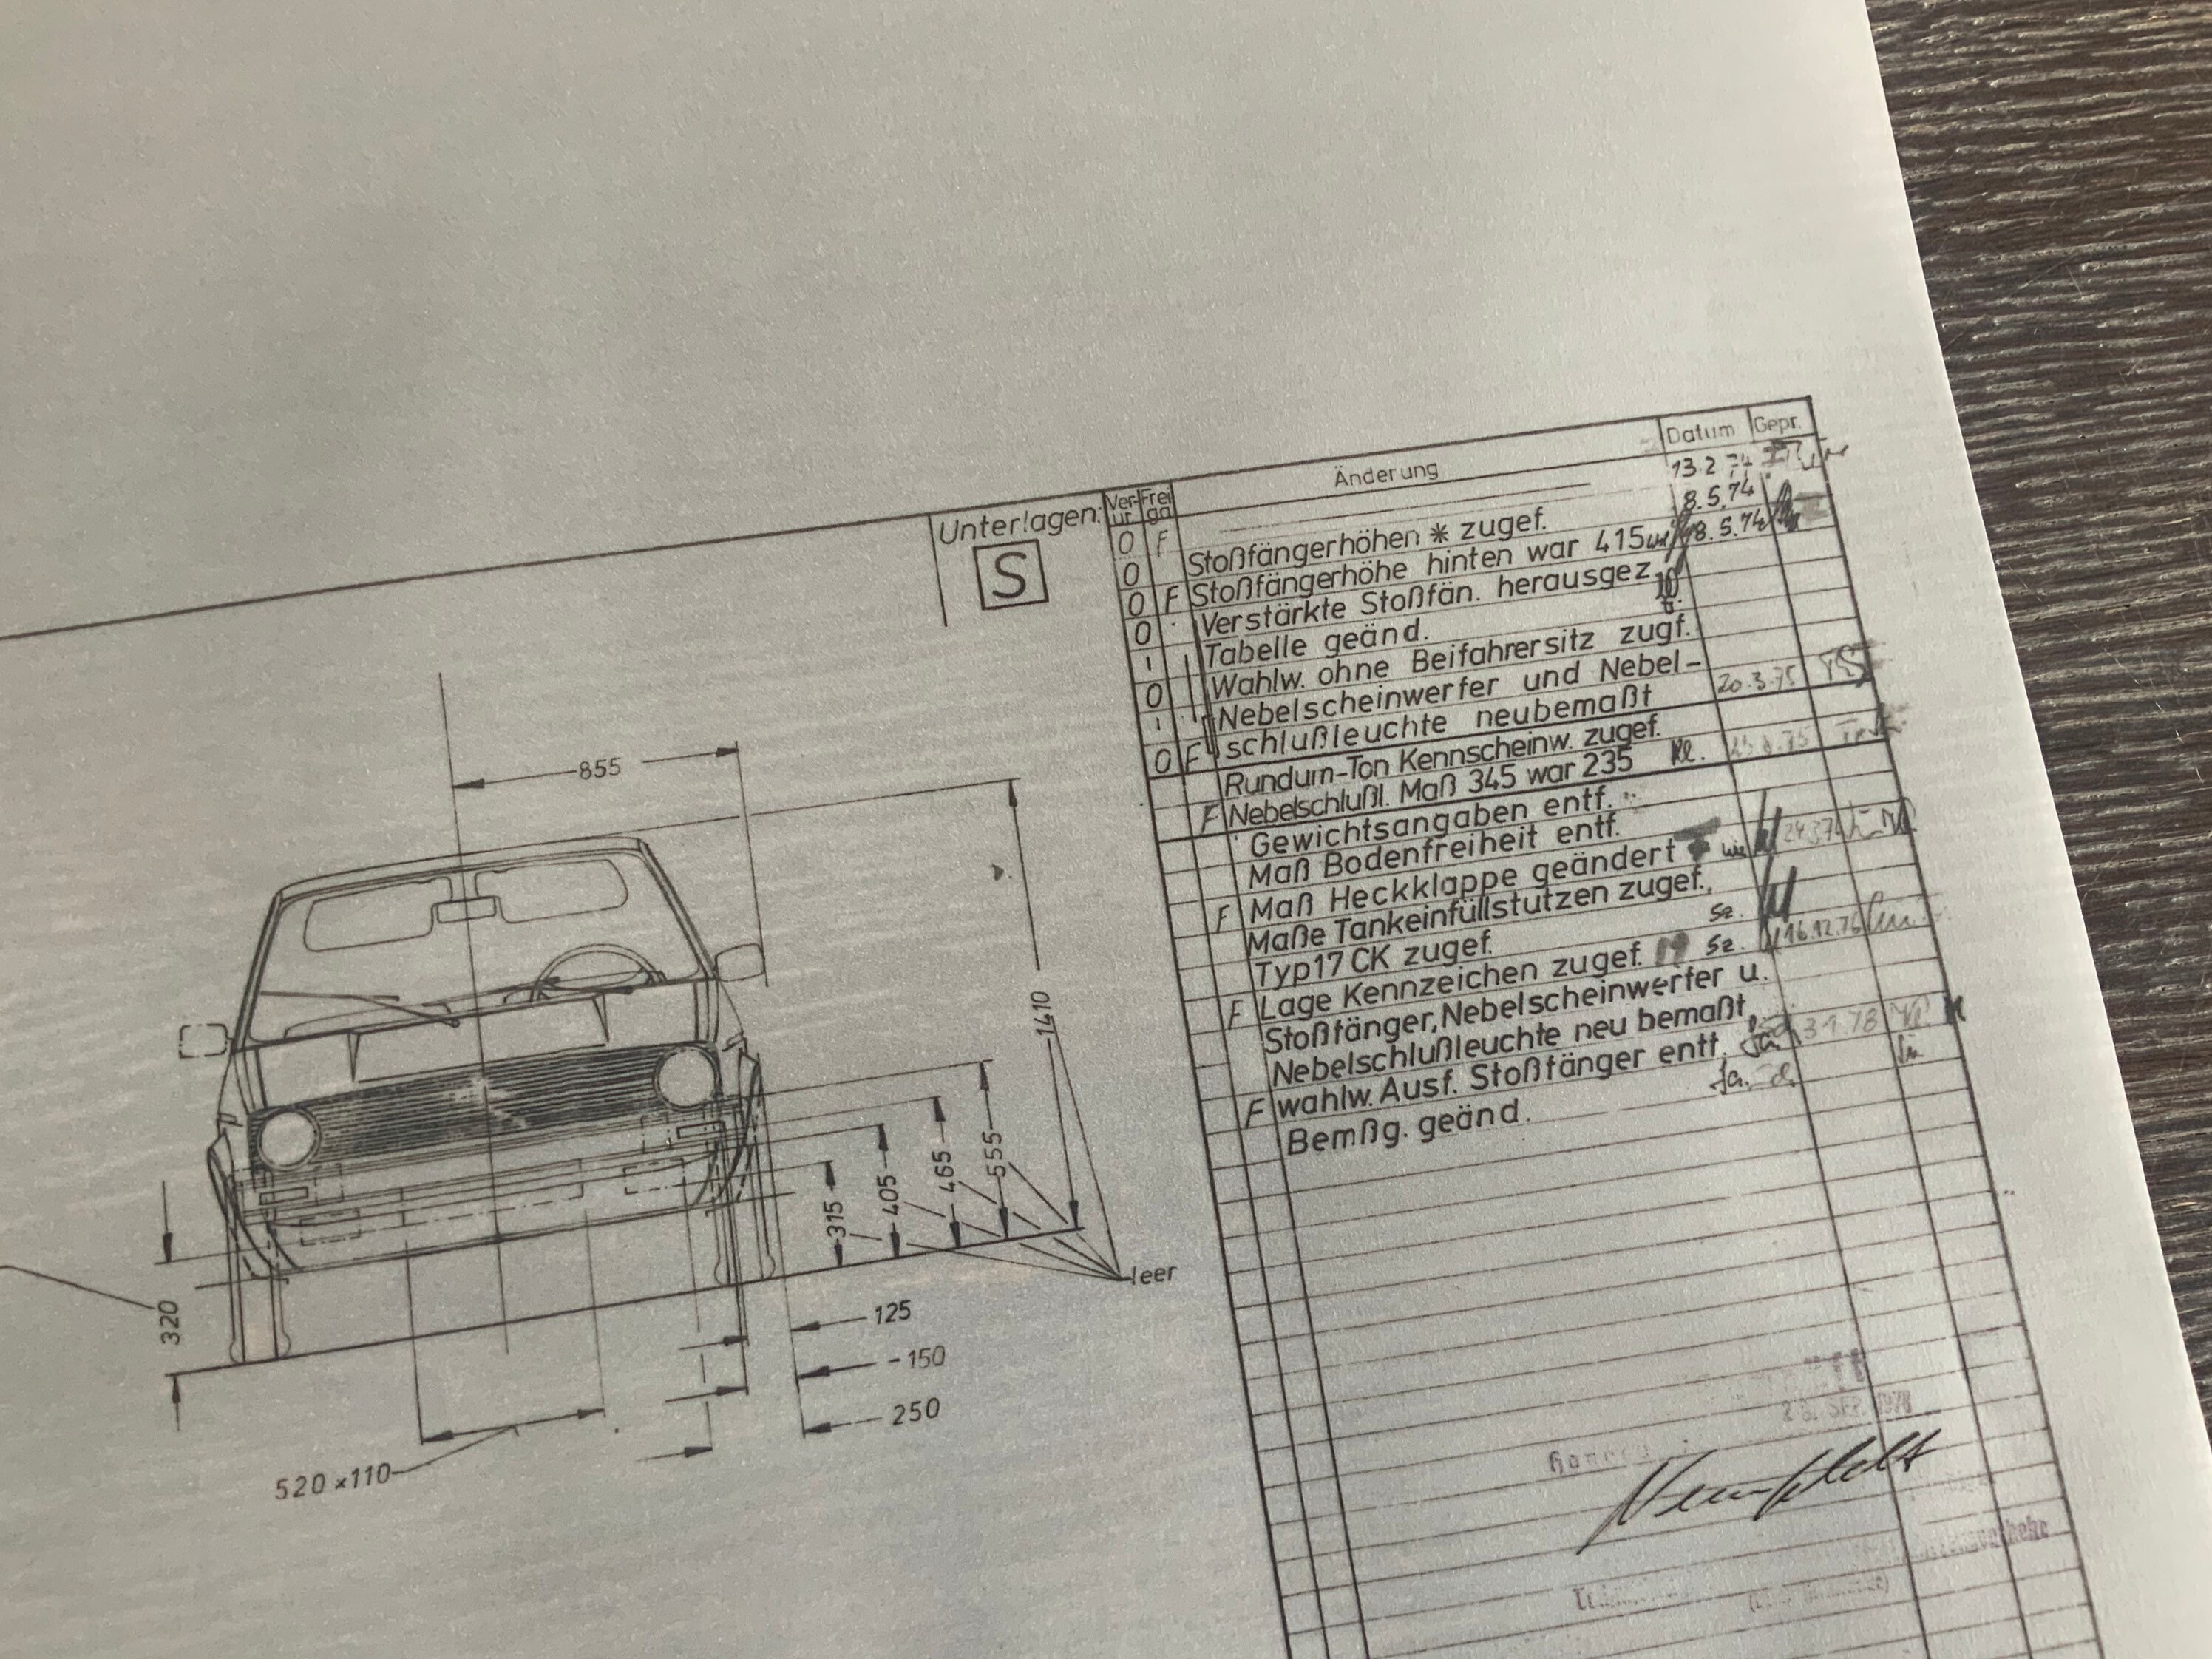 Unterlagen:
S
Ver-
ur
Frei
ga
Änderung
Datum
Gepr.
13.2.74
O F Stoßfängerhöhen * zugef. 8.5.74
O Stoßfängerhöhe hinten war 415 8.5.74
O F Verstärkte Stoßfän. herausgez.
O Tabelle geänd.
Wahlw. ohne Beifahrersitz zugf.
O Nebelscheinwerfer und Nebel-
schlußleuchte neubemaßt 20.3.75
O F Rundum-Ton Kennscheinw. zugef.
F Nebelschlußl. Maß 345 war 235
Gewichtsangaben entf.
Maß Bodenfreiheit entf.
F Maß Heckklappe geändert
Maße Tankeinfüllstutzen zugef.,
Typ17 CK zugef. Sz.
F Lage Kennzeichen zugef. Sz. 16.12.76
Stoßfänger, Nebelscheinwerfer u.
Nebelschlußleuchte neu bemaßt,
F wahlw. Ausf. Stoßfänger entf.
Bemßg. geänd.
855
1410
555
465
405
315
leer
320
125
-150
250
520 x110